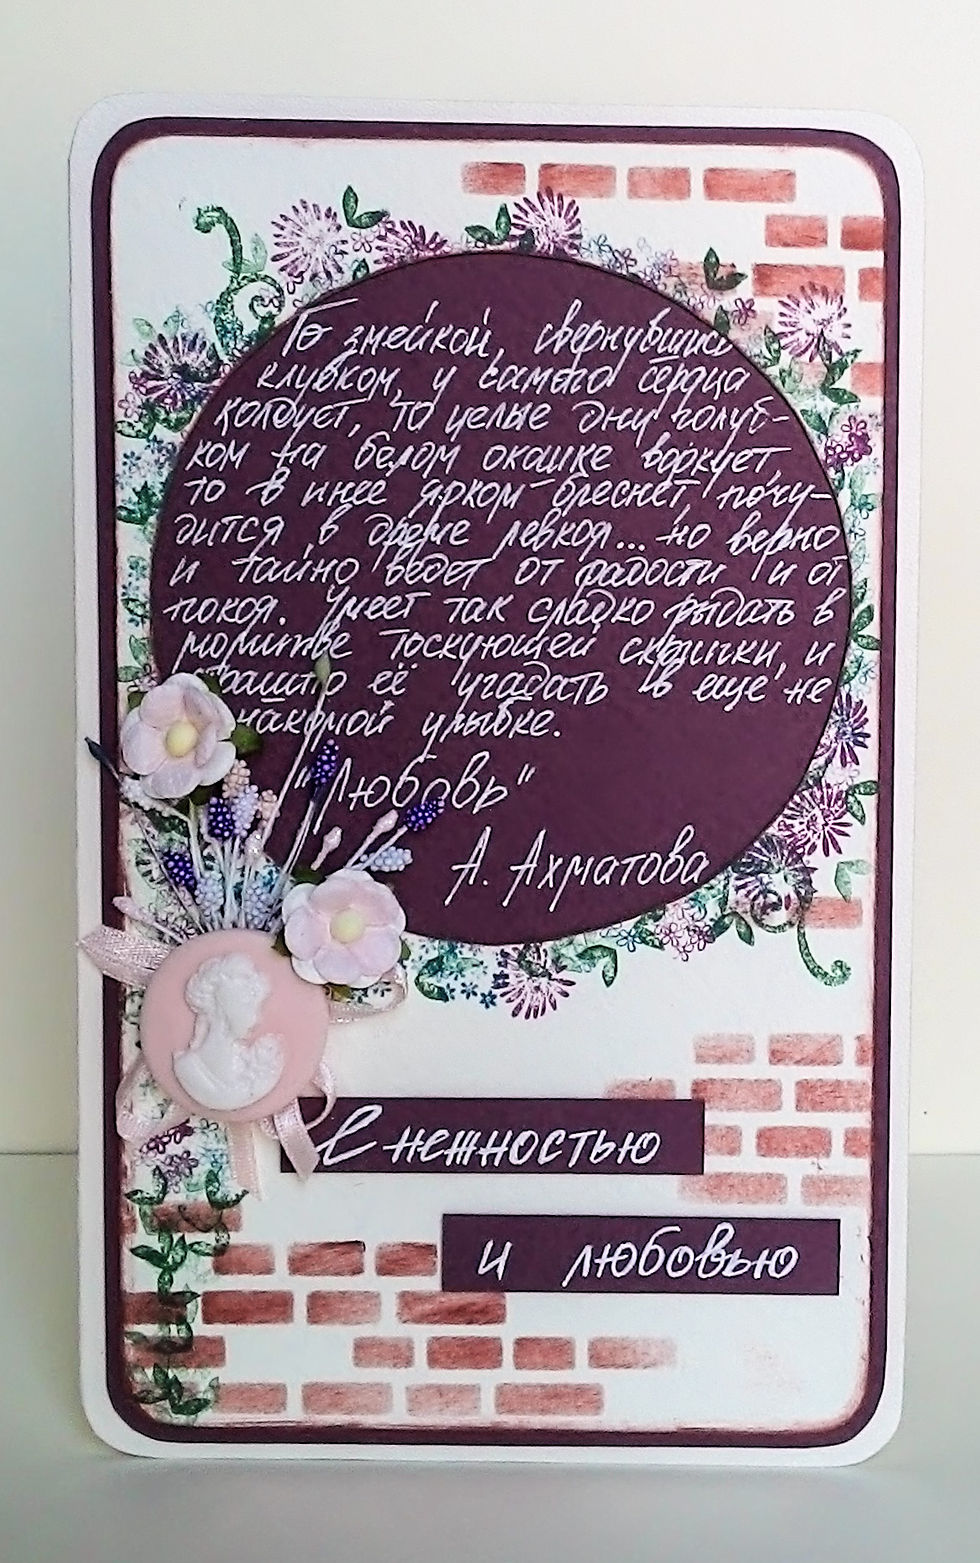 То змейкой, свернувшись
клубком, у самого сердца
колдует, то целые дни голуб-
ком на белом окошке воркует,
то в инее ярком блеснёт, почу-
дится в дреме левкоя... но верно
и тайно ведет от радости и от
покоя. Умеет так сладко рыдать в
молитве тоскующей скрипки, и
страшно её угадать в еще не
знакомой улыбке.
"Любовь"
А. Ахматова
С нежностью
и любовью